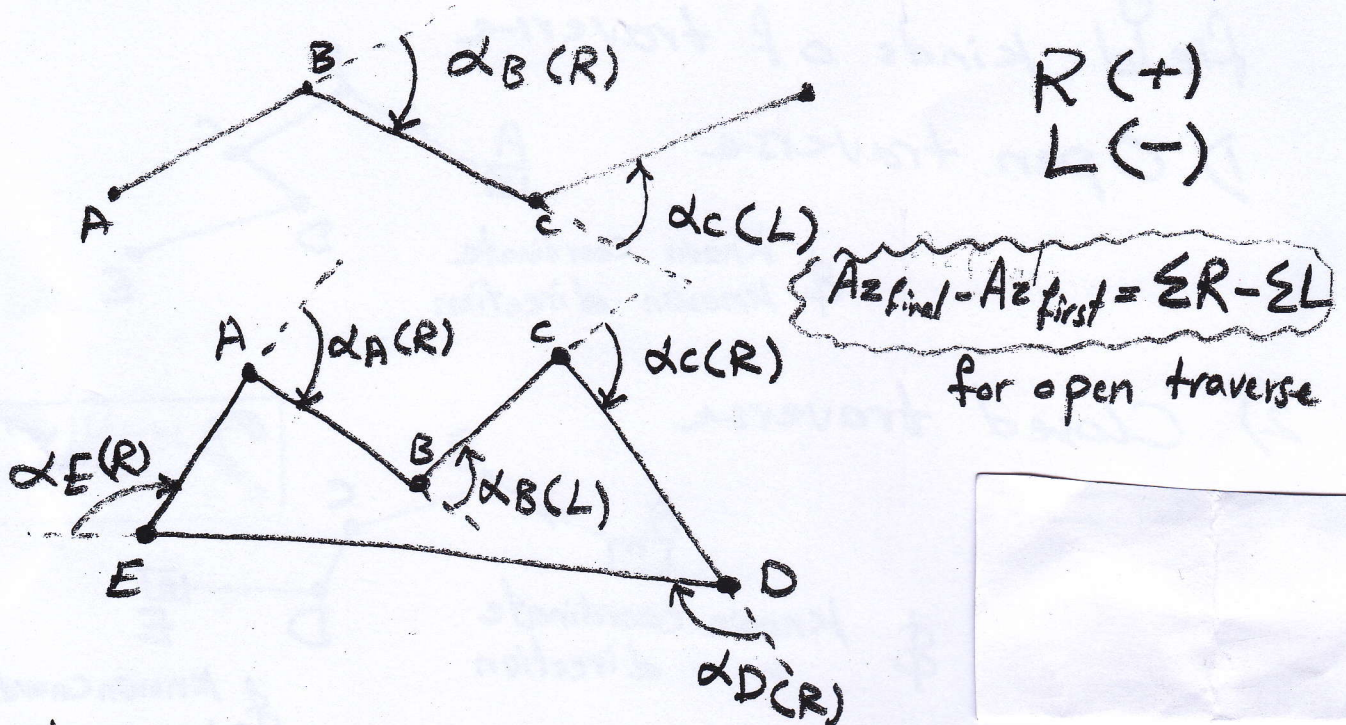 B
αB (R)
A
C
αC (L)
R (+)
L (-)
Az final - Az first = ΣR - ΣL
for open traverse
A
αA (R)
C
αC (R)
B
αB (L)
αE (R)
E
D
αD (R)